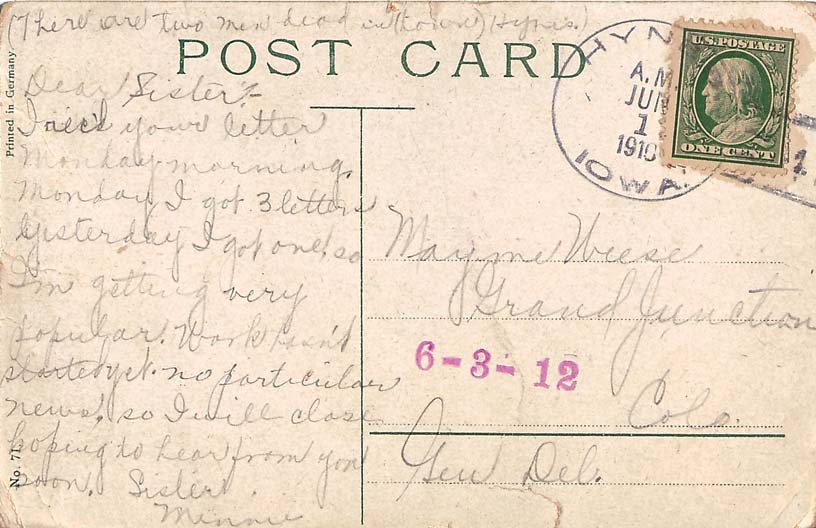 (There are two men dead in (town) Hynes.)
POST CARD
Printed in Germany
HYNES
A.M.
JUN
1
1910
IOWA.
U.S. POSTAGE
ONE CENT
1
Dear Sister:-
I rec'd your letter
Monday morning.
Monday I got 3 letters
Yesterday I got one, so
I'm getting very
popular. Work hasn't
started yet. no particular
news, so I will close
hoping to hear from you
soon. Sister
Minnie
Mayme Weese
Grand Junction
6-3-12
Colo.
Gen Del.
No. 71